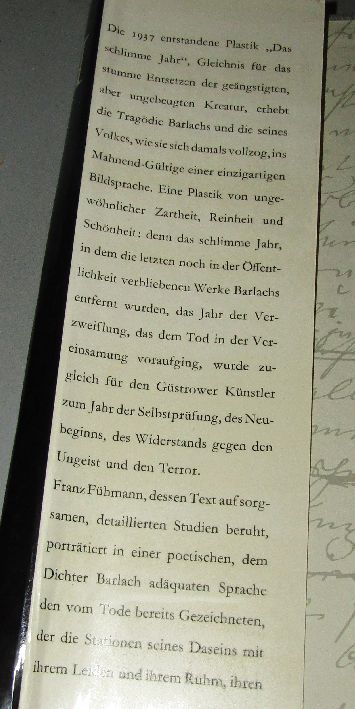 Die 1937 entstandene Plastik „Das
schlimme Jahr“, Gleichnis für das
stumme Entsetzen der geängstigten,
aber ungebeugten Kreatur, erhebt
die Tragödie Barlachs und die seines
Volkes, wie sie sich damals vollzog, ins
Mahnend-Gültige einer einzigartigen
Bildsprache. Eine Plastik von unge-
wöhnlicher Zartheit, Reinheit und
Schönheit: denn das schlimme Jahr,
in dem die letzten noch in der Öffent-
lichkeit verbliebenen Werke Barlachs
entfernt wurden, das Jahr der Ver-
zweiflung, das dem Tod in der Ver-
einsamung voraufging, wurde zu-
gleich für den Güstrower Künstler
zum Jahr der Selbstprüfung, des Neu-
beginns, des Widerstands gegen den
Ungeist und den Terror.
Franz Fühmann, dessen Text auf sorg-
samen, detaillierten Studien beruht,
porträtiert in einer poetischen, dem
Dichter Barlach adäquaten Sprache
den vom Tode bereits Gezeichneten,
der die Stationen seines Daseins mit
ihrem Leiden und ihrem Ruhm, ihren